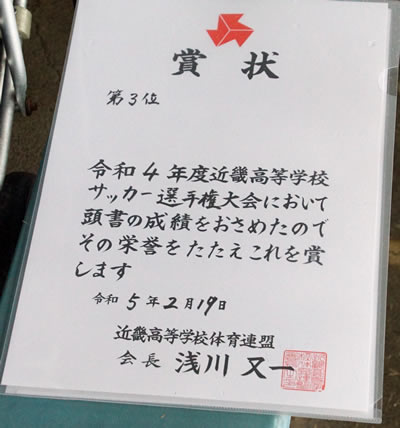 賞状
第3位
令和4年度近畿高等学校
サッカー選手権大会において
頭書の成績をおさめたので
その栄誉をたたえこれを賞
します
令和5年2月19日
近畿高等学校体育連盟
会長 浅川又一